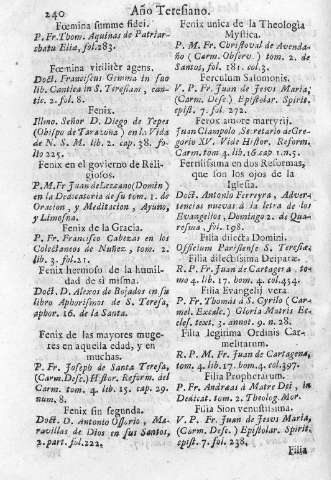 240 Año Teresiano.
Fœmina summe fidei.
P. Fr. Thom. Aquinas de Patriar-
chatu Elia, fol. 283.
Fœmina virilitèr agens.
Doct. Franciscus Gimma in suo
lib. Cantica in S. Teresiam, can-
tic. 2. fol. 8.
Fenix.
Illmo. Señor D. Diego de Yepes
(Obispo de Tarazona) en la Vida
de N. S. M. lib. 2. cap. 38. fo-
lio 225.
Fenix en el govierno de Reli-
giosos.
P. M. Fr. Juan de Lezana (Domin)
en la Dedicatoria de su tom. 1. de
Oracion, y Meditacion, Ayuno,
y Limosna.
Fenix de la Gracia.
P. Fr. Francisco Cabezas en los
Colectaneos de Nuñez, tom. 2.
lib. 3. fol. 21.
Fenix hermoso de la humil-
dad de sí misma.
Doct. D. Alexos de Bojados en su
libro Aphorismos de S. Teresa,
aphor. 16. de la Santa.
Fenix de las mayores muge-
res en aquella edad, y en
muchas.
P. Fr. Joseph de Santa Teresa,
(Carm. Desc.) Histor. Reform. del
Carm. tom. 4. lib. 15. cap. 29.
num. 8.
Fenix sin segunda.
Doct. D. Antonio Ossorio, Ma-
ravillas de Dios en sus Santos,
2. part. fol. 222.
Fenix unica de la Theologia
Mystica.
P. M. Fr. Christoval de Avenda-
ño (Carm. Observ.) tom. 2. de
Santos, fol. 181. col. 3.
Ferculum Salomonis.
V. P. Fr. Juan de Jesus Maria,
(Carm. Desc.) Epistolar. Spirit.
epist. 7. fol. 272.
Feros amore martyrii.
Juan Ciampolo Secretario de Gre-
gorio XV. Vide Histor. Reform.
Carm. tom. 4. lib. 16. cap. 1. n. 5.
Fertilissima en dos Reformas,
que son los ojos de la
Iglesia.
Doct. Antonio Ferreyra, Adver-
tencias nuevas à la letra de los
Evangelios, Domingo 2. de Qua-
resma, fol. 198.
Filia dilecta Domini.
Officium Parisiense S. Teresiæ.
Filia dilectissima Deiparæ.
R. P. Fr. Juan de Cartagena, to-
mo 4. lib. 17. hom. 9. col. 454.
Filia Evangelij vera.
P. Fr. Thomás à S. Cyrilo (Car-
mel. Excalc.) Gloria Matris Ec-
cles. text. 3. annot. 9. n. 28.
Filia legitima Ordinis Car-
melitarum.
R. P. M. Fr. Juan de Cartagena,
tom. 4. lib. 17. hom. 4. col. 397.
Filia Prophetarum.
P. Fr. Andræas à Matre Dei, in
Dedicat. tom. 2. Theolog. Mor.
Filia Sion venustissima.
V. P. Fr. Juan de Jesus Maria,
(Carm. Desc.) Epistolar. Spirit.
epist. 7. fol. 238.
Filia